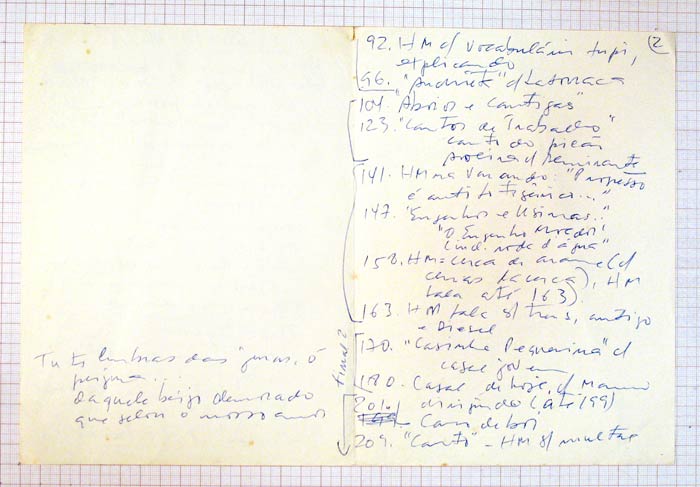 2
92. HM c/ vocabulário tupi,
explicando
96. "
104. "Aboios e Cantigas"
123. "Cantos de Trabalho"
canto do pilão
141. HM na varanda: "Progresso
é anti fotogênico..."
147. "Engenhos e Usinas..."
"O Engenho
(incl. roda d'água"
158. HM = cerca de arame (c/
cenas da cerca), HM
fala até 163).
163. HM fala s/ trens, antigo
e Diesel
170. "Casinha Pequenina" c/
casal jovem
180. Casal de hoje, c/ Mauro
dirigindo (até 199)
201. Carro de boi
209. "Canto" - HM s/
final?
Tu te lembras das juras, ó
perjura...
daquele beijo demorado
que selou o nosso amor